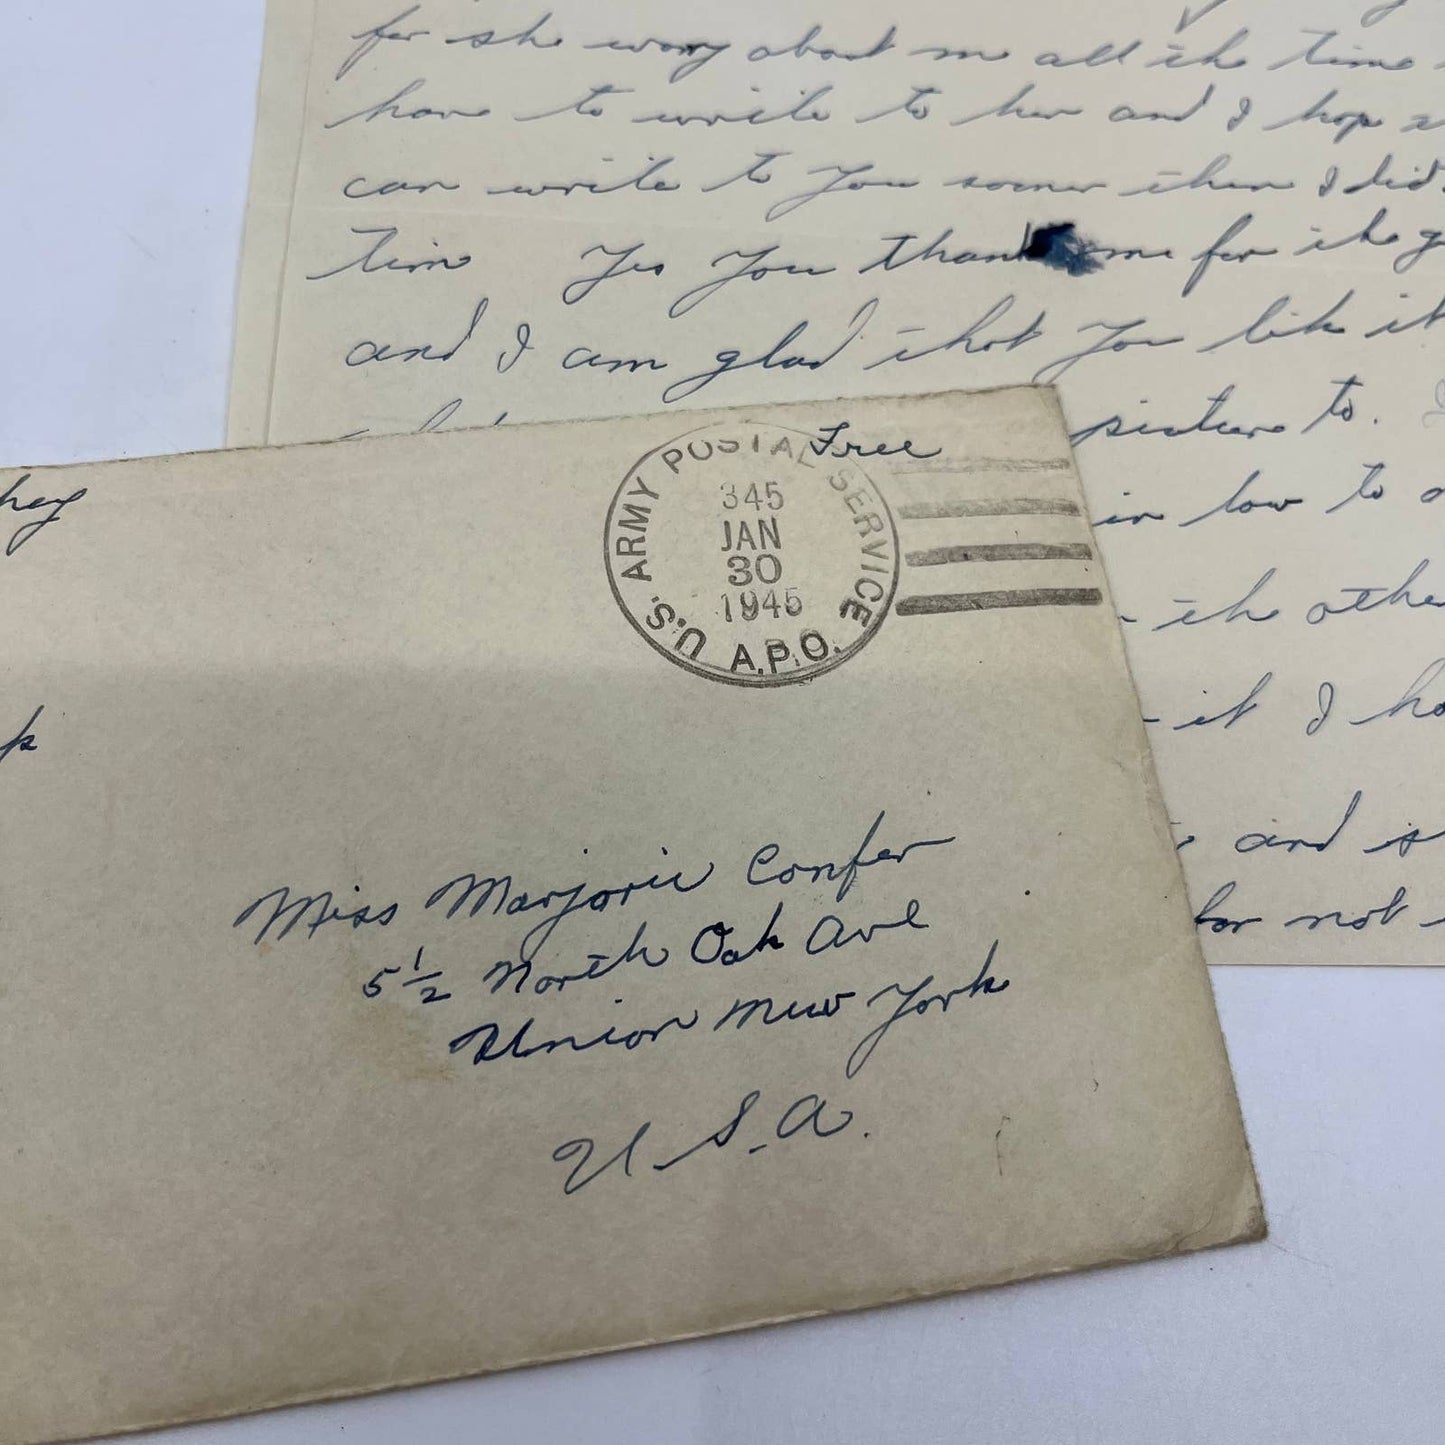 for she worry about me all the time
have to write to her and I hope
can write to you sooner then I did
time Yes you thank me for the
and I am glad that you like it
picture to.
in low to
the other
it I
and
for not
Free
U.S. ARMY POSTAL SERVICE
345
JAN
30
1945
A.P.O.
Miss Marjorie Confer
5 1/2 North Oak Ave
Union New York
U.S.A.